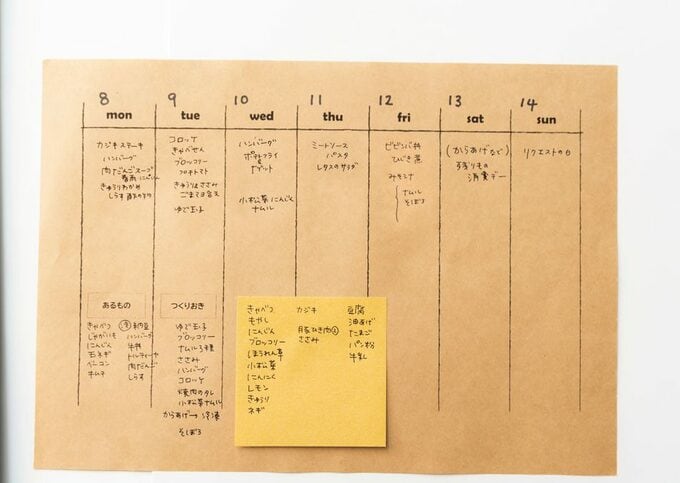 8 9 10 11 12 13 14
mon tue wed thu fri sat sun
カジキステーキ
ハンバーグ
肉だんごスープ
きゅうりわかめ
しらす
コロッケ
きゃべせん
ブロッコリー
プチトマト
きゅうりとささみ
ごまマヨ合え
ゆで玉子
ハンバーグ
ポテトフライ
ナゲット
小松菜 にんじん
ナムル
ミートソース
パスタ
レタスのサラダ
ビビンバ丼
ひじき煮
みそシル
ナムル
そぼろ
(からあげなど)
残りもの
消費デー
リクエストの日
あるもの
きゃべつ
じゃがいも
にんじん
玉ネギ
ベーコン
キムチ
納豆
ハンバーグ
牛丼
トルティーヤ
肉だんご
しらす
つくりおき
ゆで玉子
ブロッコリー
ナムル3種
ささみ
ハンバーグ
コロッケ
焼肉のタレ
小松菜ナムル
からあげ→冷凍
そぼろ
きゃべつ
もやし
にんじん
ブロッコリー
ほうれん草
小松菜
にんにく
レモン
きゅうり
ネギ
カジキ
豚ひき肉
ささみ
豆腐
油あげ
たまご
パン粉
牛乳